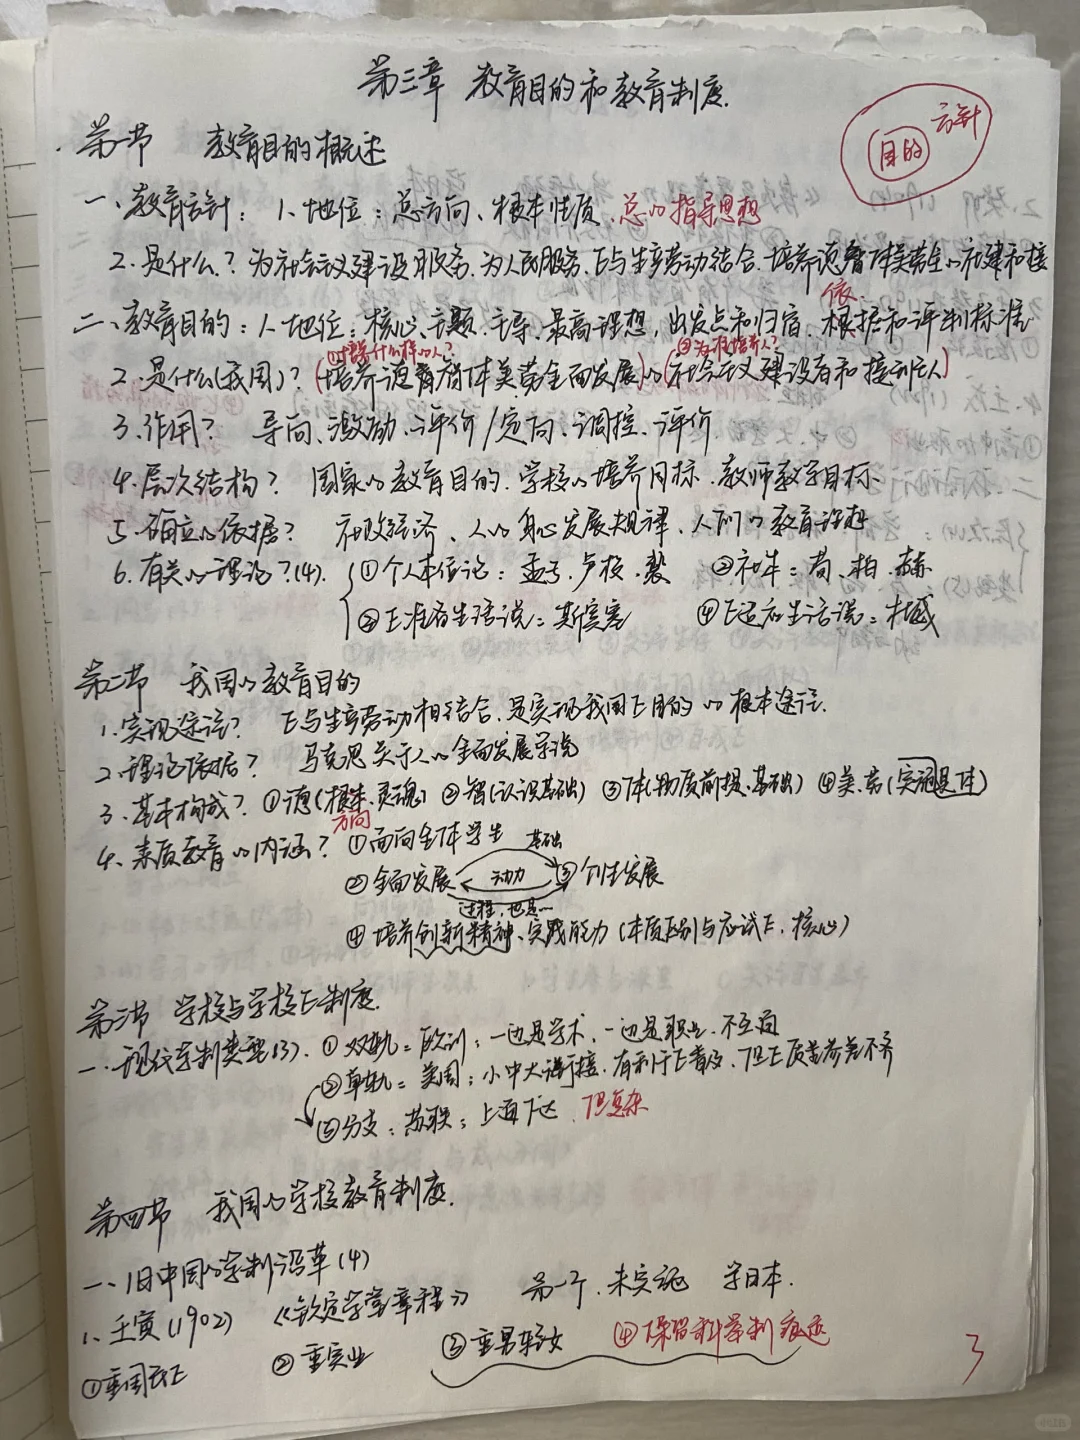 第三章 教育目的和教育制度.
方针
目的
第一节 教育目的概述
一、教育方针：1、地位：总方向、根本性质、总的指导思想
2.是什么？为社会主义建设服务.为人民服务.E与生产劳动结合.培养德智体美劳全的社建和接
依
二、教育目的：1.地位：核心、主题、主导、最高理想，出发点和归宿、根据和评判标准
①培养什么样的人？ ②为谁培养人？
2.是什么(我国)？(培养德智体美劳全面发展)的(社会主义建设者和接班人)
3.作用？ 导向、激励、评价/定向、调控、评价
4.层次结构？ 国家的教育目的.学校的培养目标.教师教学目标.
5.确立的依据？ 社政经济、人的身心发展规律、人们的教育理想
6.有关的理论？(4). ①个人本位论：孟子.卢梭.裴 ②社本：荀、柏.赫
③E准备生活说：斯宾塞 ④E适应生活说：杜威
第二节 我国的教育目的
1.实现途径？ E与生产劳动相结合.是实现我国E目的的根本途径.
2.理论依据？ 马克思关于人的全面发展学说
3.基本构成？①德(根本.灵魂) ②智(认识基础) ③体(物质前提.基础) ④美.劳(实施是体)
方向
4、素质教育的内涵？ ①面向全体学生 基础
②全面发展 动力 ③个性发展
过程，也是一
④培养创新精神、实践能力(本质区别与应试E.核心)
第三节 学校与学校E制度.
一.现代学制类型(3). ①双轨：西欧：一边是学术.一边是职业.不互通
②单轨：美国：小中大衔接.有利于E普及.但E质量参差不齐
③分支：苏联：上通下达.但复杂
第四节 我国的学校教育制度.
一、旧中国的学制沿革(4)
1.壬寅(1902) 《钦定学堂章程》 第一个.未实施 学日本.
①重国民E ②重实业 ③重男轻女 ④保留科举制痕迹
3